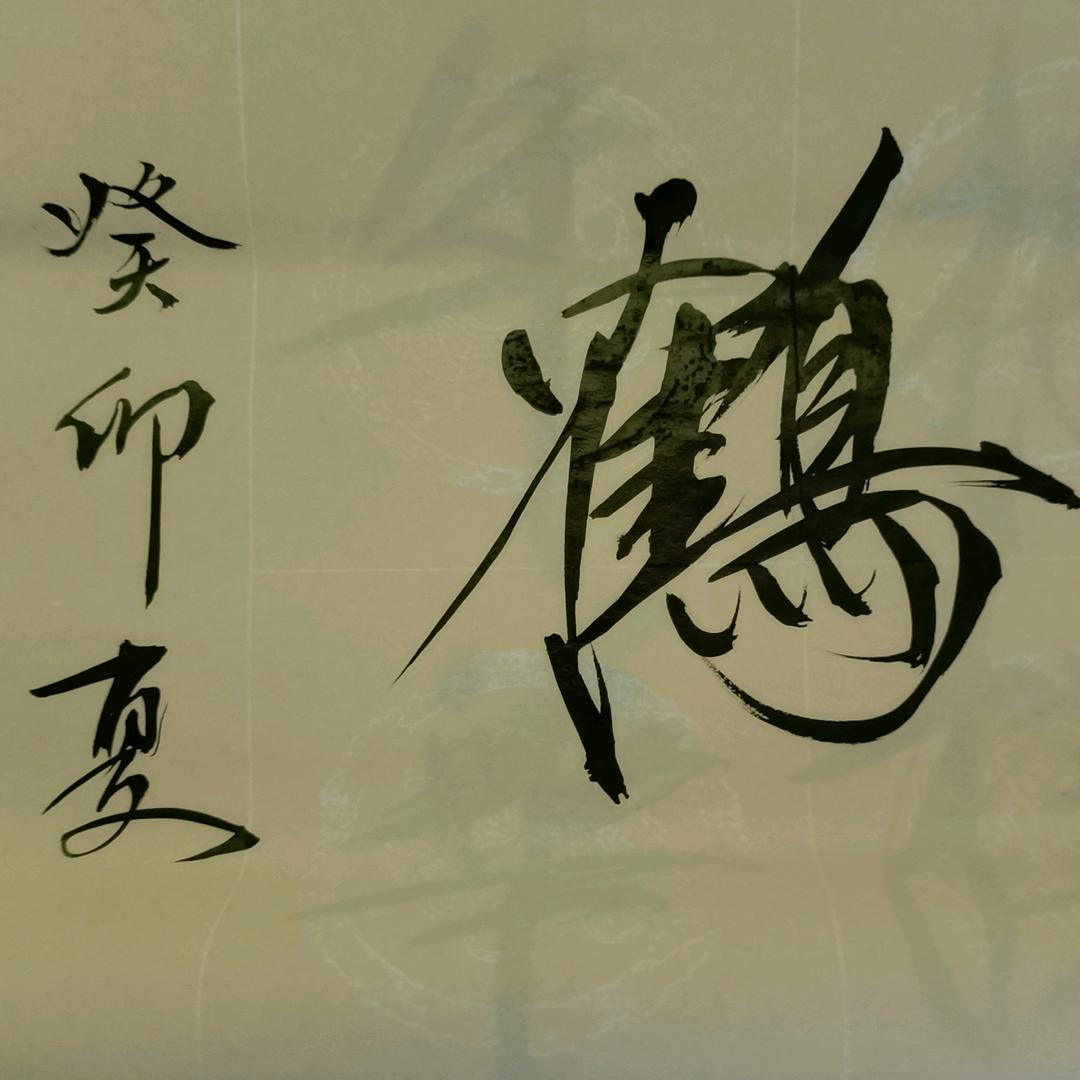 鶴
癸卯夏